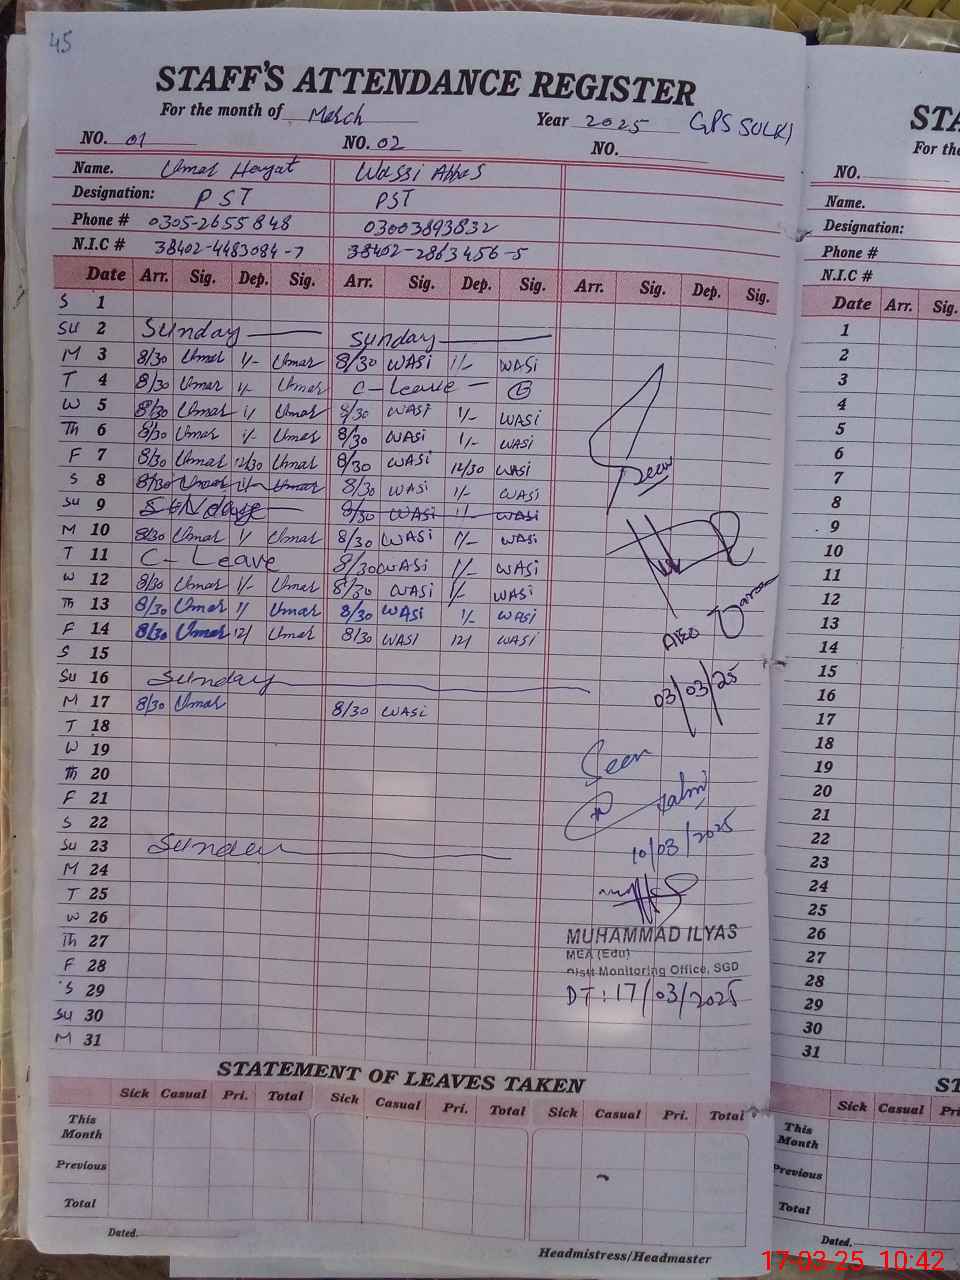 45
STAFF'S ATTENDANCE REGISTER
For the month of March Year 2025 GPS SULKI
NO. 01 NO. 02 NO.
Name. Umar Hayat Wassi Abbas
Designation: PST PST
Phone # 0305-2655848 03003893832
N.I.C # 38402-4483084-7 38402-2863456-5
Date Arr. Sig. Dep. Sig. Arr. Sig. Dep. Sig. Arr. Sig. Dep. Sig.
S 1
Su 2 Sunday Sunday
M 3 8/30 Umar 1/- Umar 8/30 WASi 1/- WASi
T 4 8/30 Umar 1/- Umar C-Leave
W 5 8/30 Umar 1/- Umar 8/30 WASi 1/- WASi
Th 6 8/30 Umar 1/- Umar 8/30 WASi 1/- WASi
F 7 8/30 Umar 12/30 Umar 8/30 WASi 12/30 WASi
S 8 8/30 Umar 1/- Umar 8/30 WASi 1/- WASi
Su 9 Sunday 8/30 WASi 1/- WASi
M 10 8/30 Umar 1/ Umar 8/30 WASi 1/- WASi
T 11 C-Leave 8/30 WASi 1/- WASi
W 12 8/30 Umar 1/- Umar 8/30 WASi 1/- WASi
Th 13 8/30 Umar 1/ Umar 8/30 WASi 1/- WASi
F 14 8/30 Umar 12/ Umar 8/30 WASI 12/ WASi
S 15
Su 16 Sunday
M 17 8/30 Umar 8/30 WASi
T 18
W 19
Th 20
F 21
S 22
Su 23 Sunday
M 24
T 25
W 26
Th 27
F 28
S 29
Su 30
M 31
Seen
AEO
03/03/25
Seen
10/03/2025
MUHAMMAD ILYAS
MEA (Edu)
Distt Monitoring Office, SGD
DT: 17/03/2025
STATEMENT OF LEAVES TAKEN
Sick Casual Pri. Total Sick Casual Pri. Total Sick Casual Pri. Total
This Month
Previous
Total
Dated.
Headmistress/Headmaster
STA
For the
NO.
Name.
Designation:
Phone #
N.I.C #
Date Arr. Sig.
1
2
3
4
5
6
7
8
9
10
11
12
13
14
15
16
17
18
19
20
21
22
23
24
25
26
27
28
29
30
31
ST
Sick Casual Pri
This Month
Previous
Total
Dated.
17-03-25 10:42